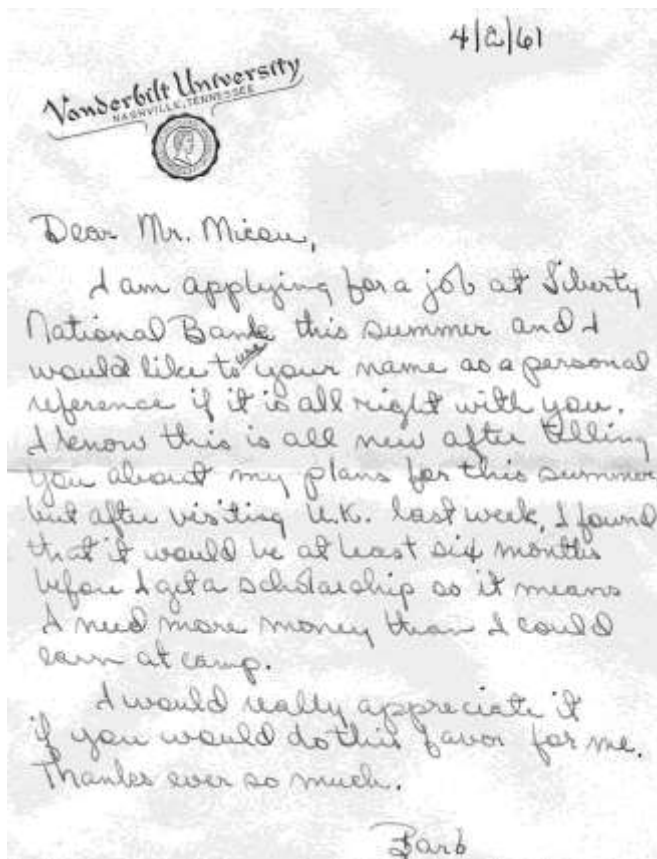 4/2/61
Vanderbilt University
NASHVILLE, TENNESSEE
Dear Mr. Micou,
I am applying for a job at Liberty
National Bank this summer and I
would like to use your name as a personal
reference if it is all right with you.
I know this is all new after telling
you about my plans for this summer
but after visiting U.K. last week, I found
that it would be at least six months
before I get a scholarship so it means
I need more money than I could
earn at camp.
I would really appreciate it
if you would do this favor for me.
Thanks ever so much.
Barb